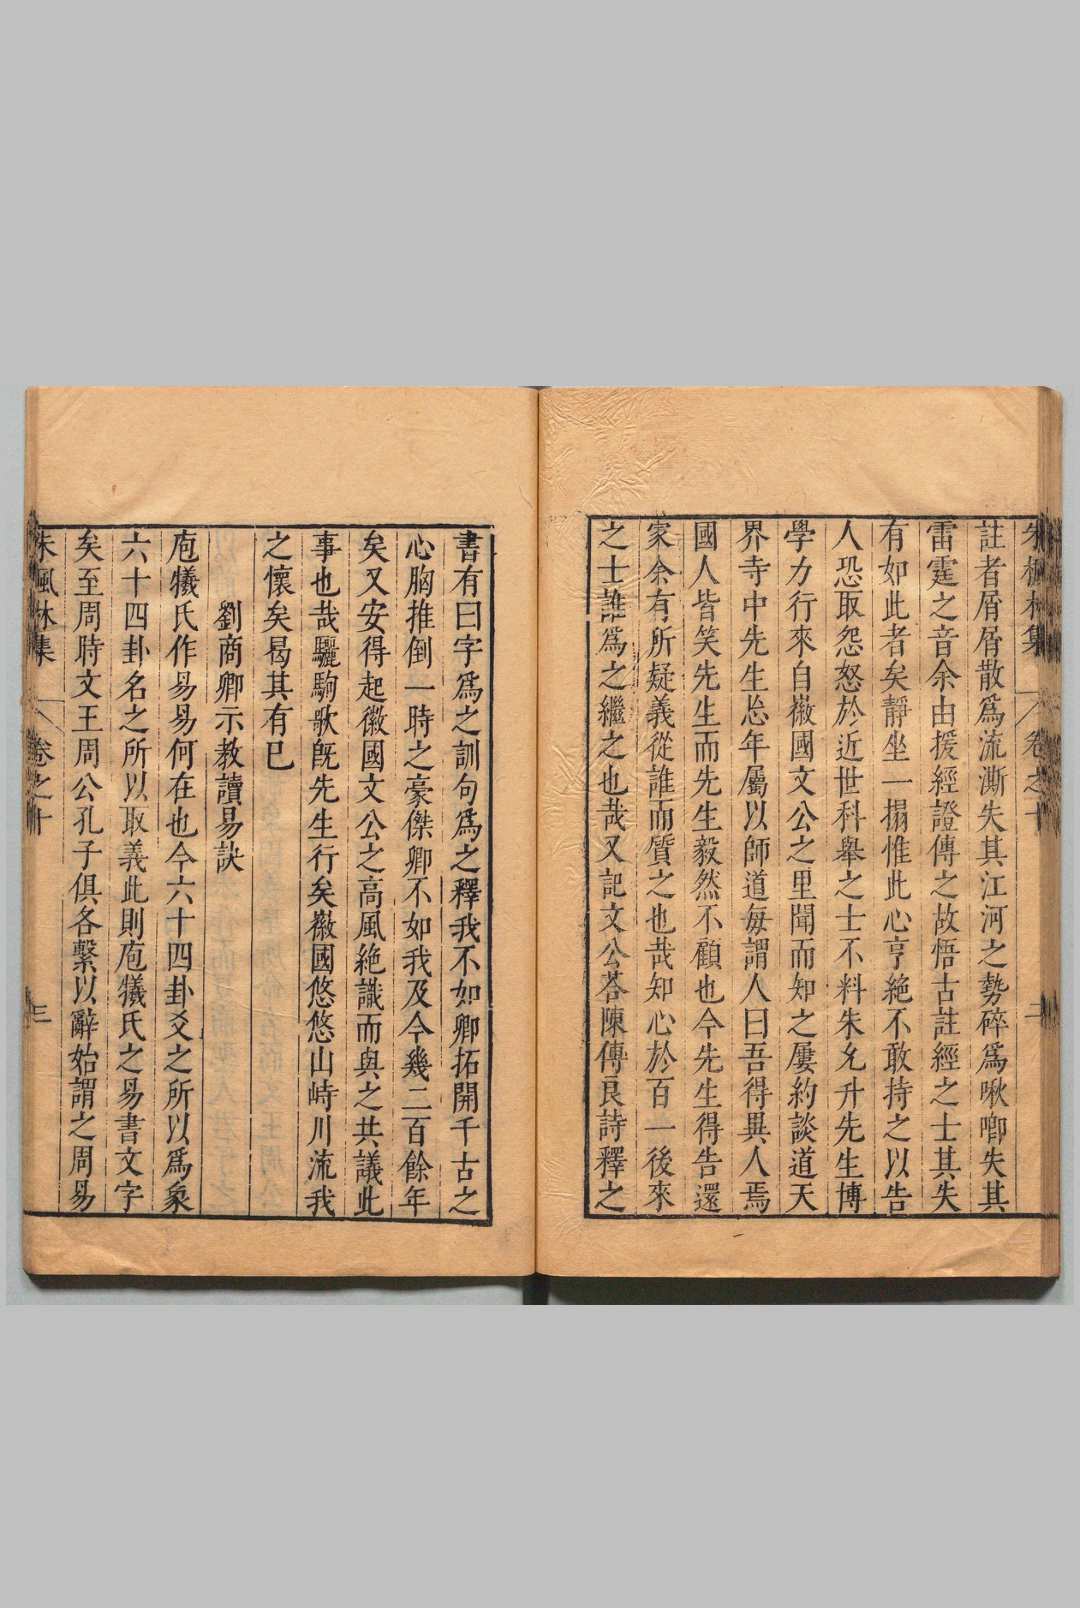 朱楓林集 卷之十 二
註者屑屑散爲流澌失其江河之勢碎爲啾唧失其
雷霆之音余由援經證傳之故悟古註經之士其失
有如此者矣靜坐一搨惟此心亨絶不敢持之以告
人恐取怨怒於近世科舉之士不料朱允升先生博
學力行來自㠫國文公之里聞而知之屢約談道天
界寺中先生㤀年屬以師道每謂人曰吾得異人焉
國人皆笑先生而先生毅然不顧也今先生得告還
家余有所疑義從誰而質之也哉知心於百一後來
之士誰爲之繼之也哉又記文公荅陳傅良詩釋之
書有曰字爲之訓句爲之釋我不如卿拓開千古之
心胸推倒一時之豪傑卿不如我及今幾二百餘年
矣又安得起徽國文公之高風絶識而與之共議此
事也哉驪駒歌旣先生行矣㠫國悠悠山峙川流我
之懷矣曷其有已
劉商卿示教讀易訣
庖犧氏作易易何在也今六十四卦爻之所以爲象
六十四卦名之所以取義此則庖犧氏之易書文字
矣至周時文王周公孔子俱各繫以辭始謂之周易
朱楓林集 卷之十 三